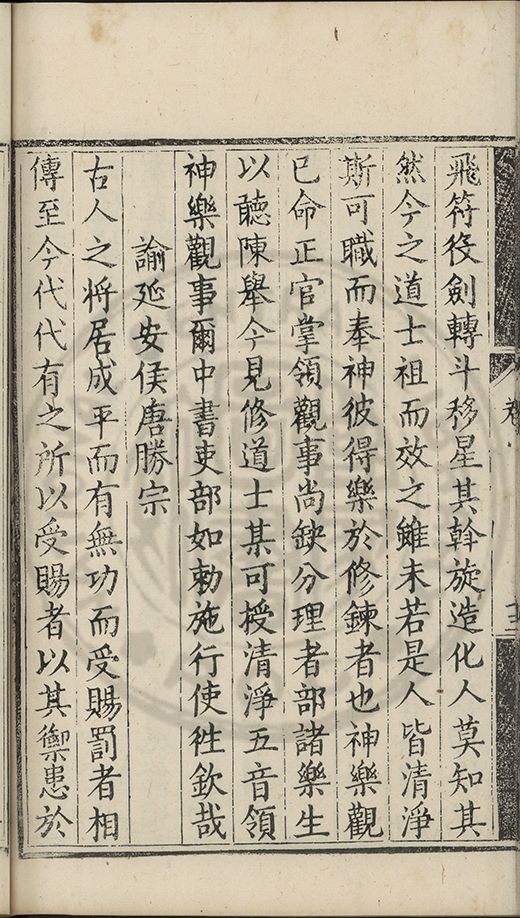 飛符役劍轉斗移星其斡旋造化人莫知其
然今之道士祖而效之雖未若是人皆清淨
斯可職而奉神彼得樂於修鍊者也神樂觀
已命正官掌領觀事尚缺分理者部諸樂生
以聽陳舉今見修道士某可授清淨五音領
神樂觀事爾中書吏部如勅施行使徃欽哉
諭延安侯唐勝宗
古人之將居成平而有無功而受賜罰者相
傳至今代代有之所以受賜者以其禦患於